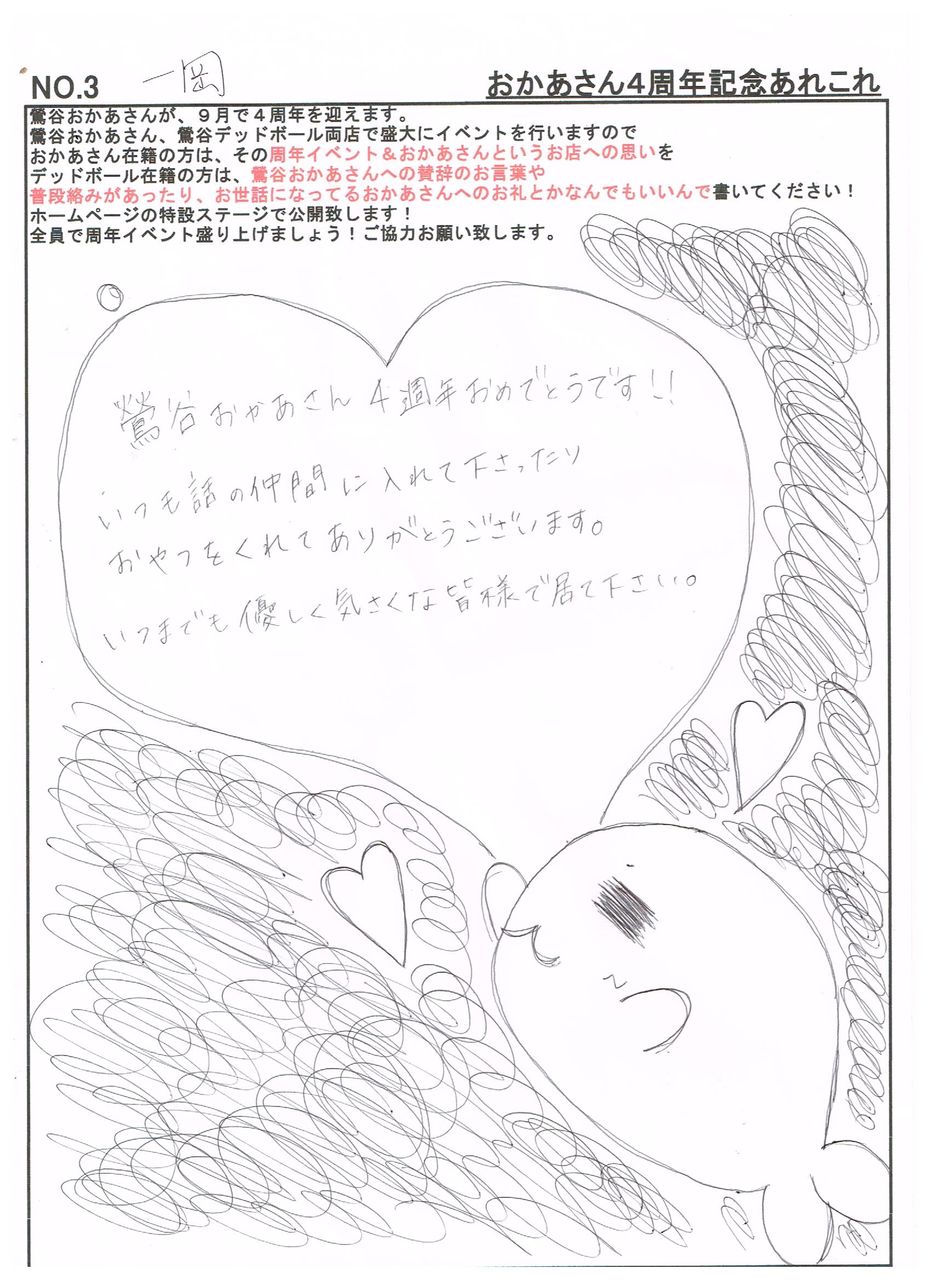 NO.3 一岡 おかあさん4周年記念あれこれ
鶯谷おかあさんが、9月で4周年を迎えます。
鶯谷おかあさん、鶯谷デッドボール両店で盛大にイベントを行いますので
おかあさん在籍の方は、その周年イベント＆おかあさんというお店への思いを
デッドボール在籍の方は、鶯谷おかあさんへの賛辞のお言葉や
普段絡みがあったり、お世話になってるおかあさんへのお礼とかなんでもいいんで書いてください！
ホームページの特設ステージで公開致します！
全員で周年イベント盛り上げましょう！ご協力お願い致します。
鶯谷おかあさん4週年おめでとうです!!
いつも話の仲間に入れて下さったり
おやつをくれてありがとうございます。
いつまでも優しく気さくな皆様で居て下さい。